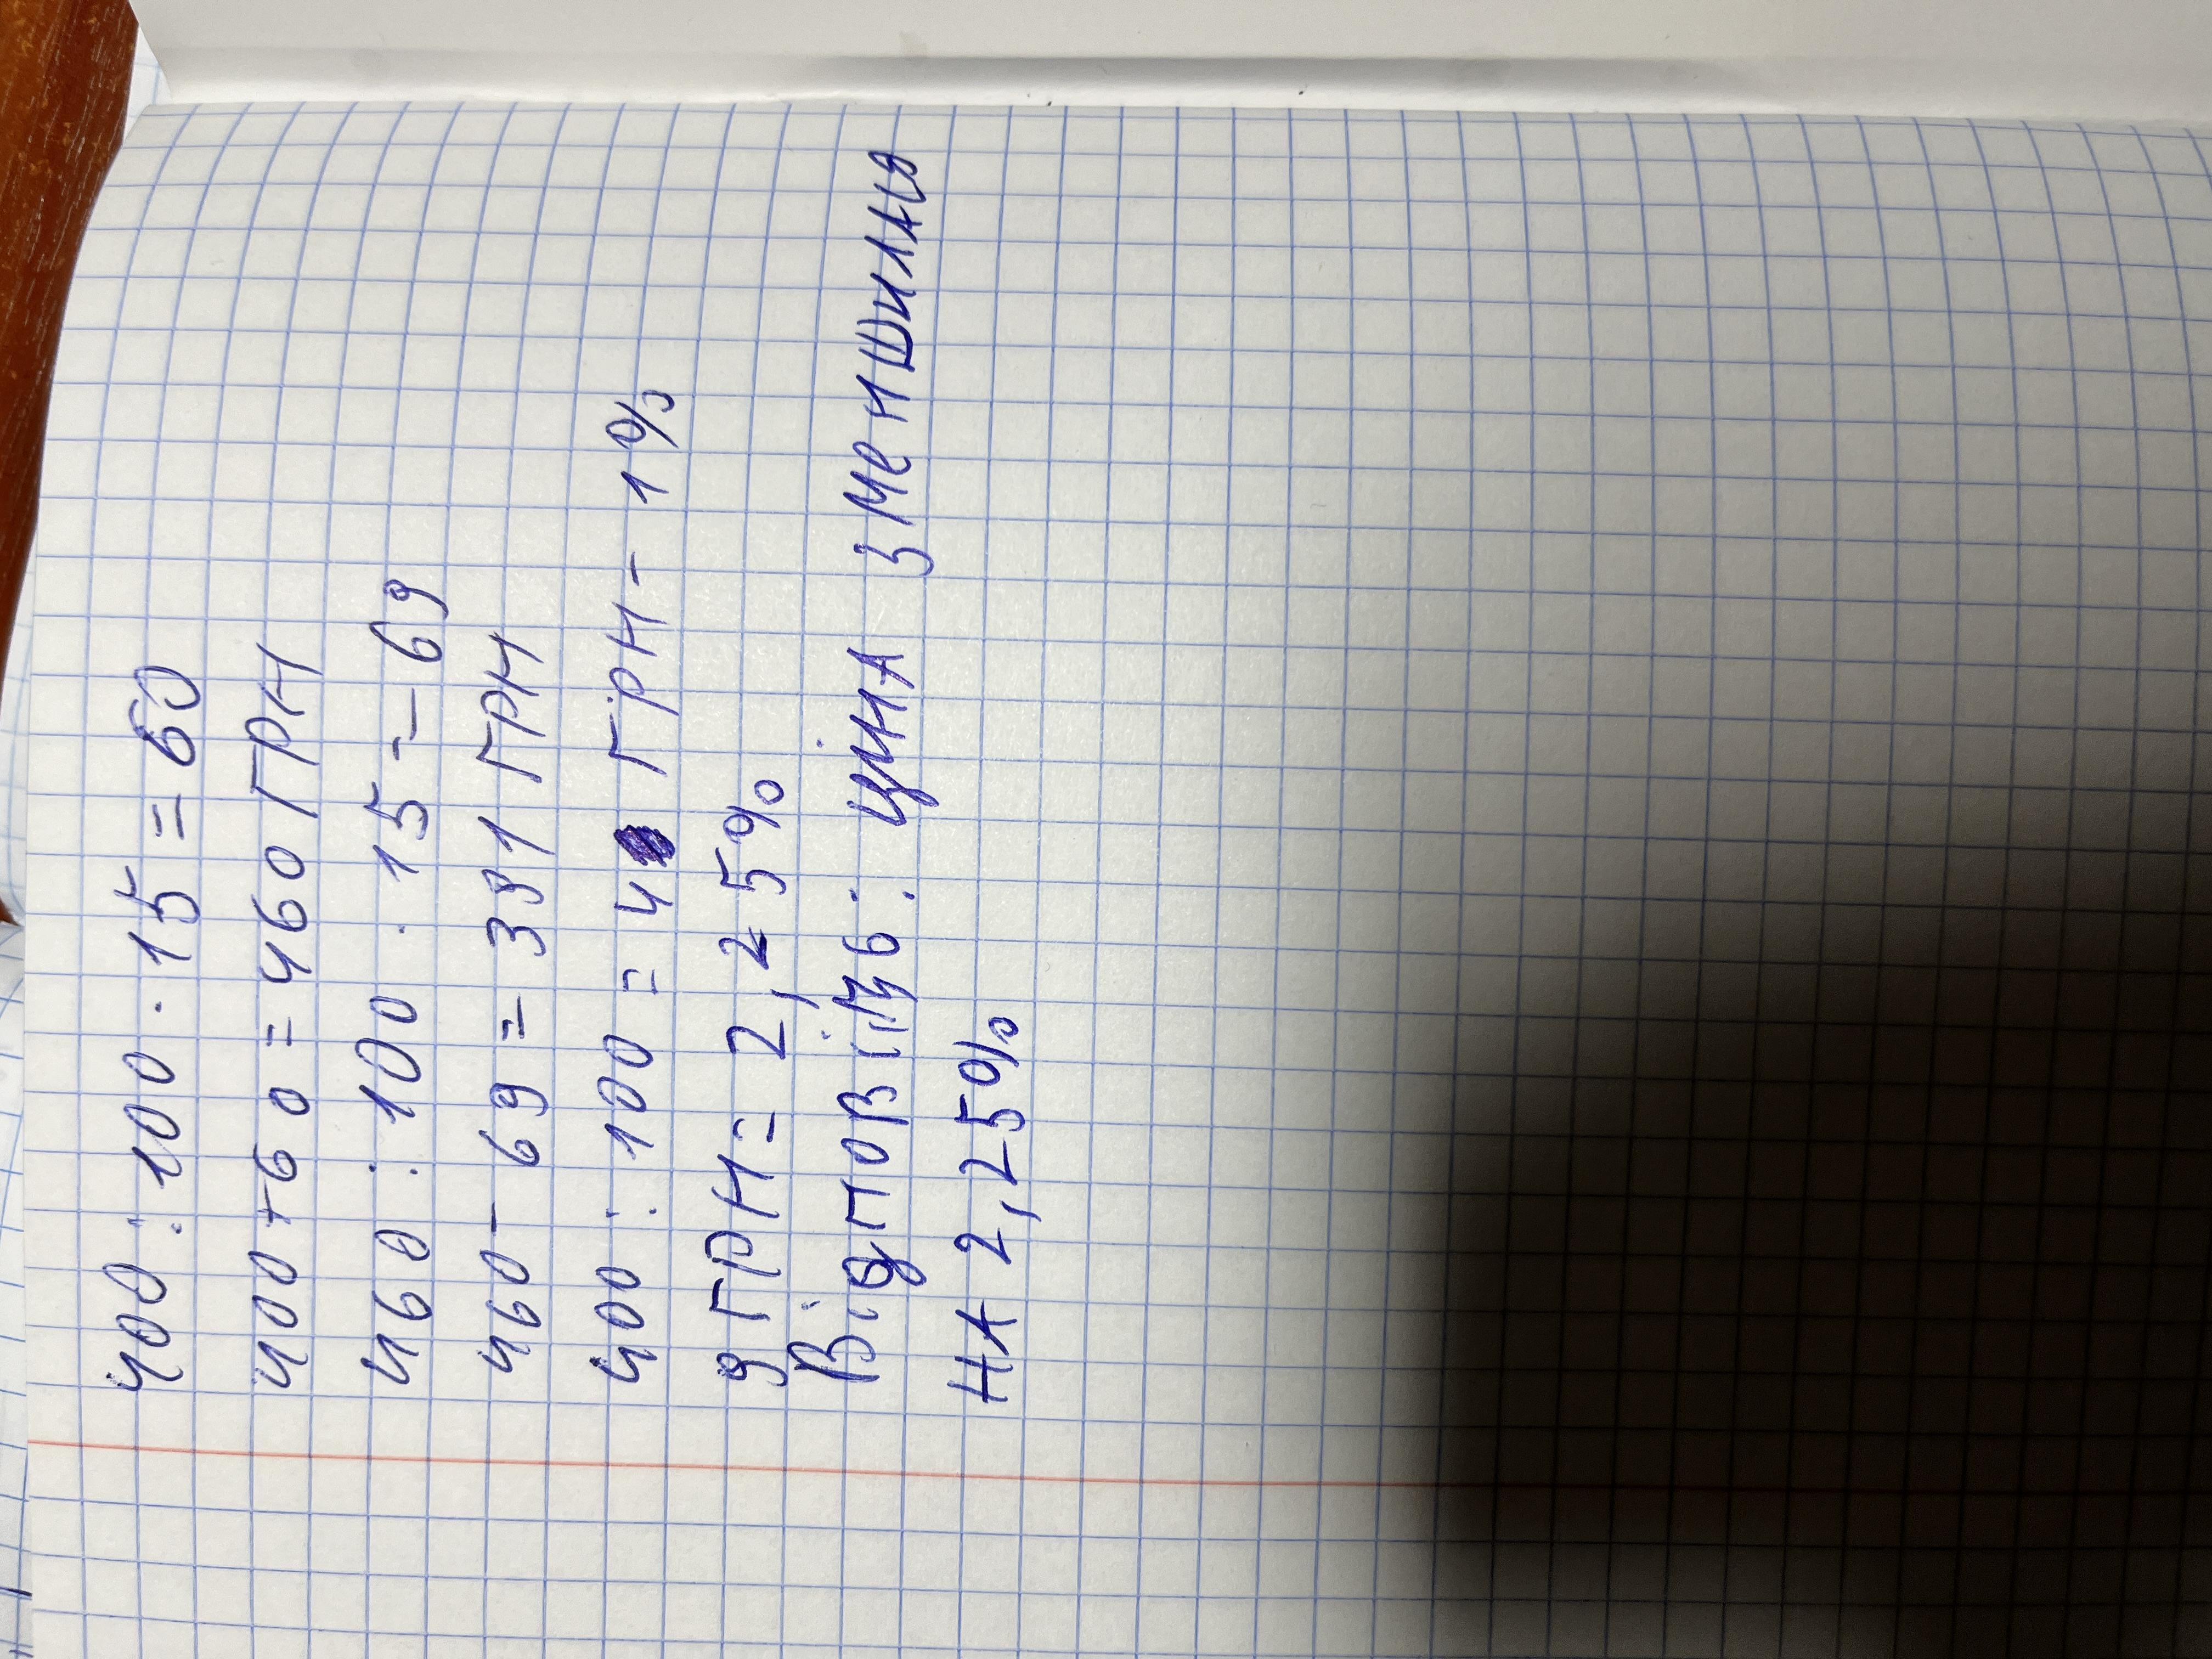 400 : 100 · 15 = 60
400 + 60 = 460 ГРН
460 : 100 · 15 = 69
460 - 69 = 391 ГРН
400 : 100 = 4 ГРН - 1%
9 ГРН = 2,25%
Відповідь: ціна зменшилася
на 2,25%